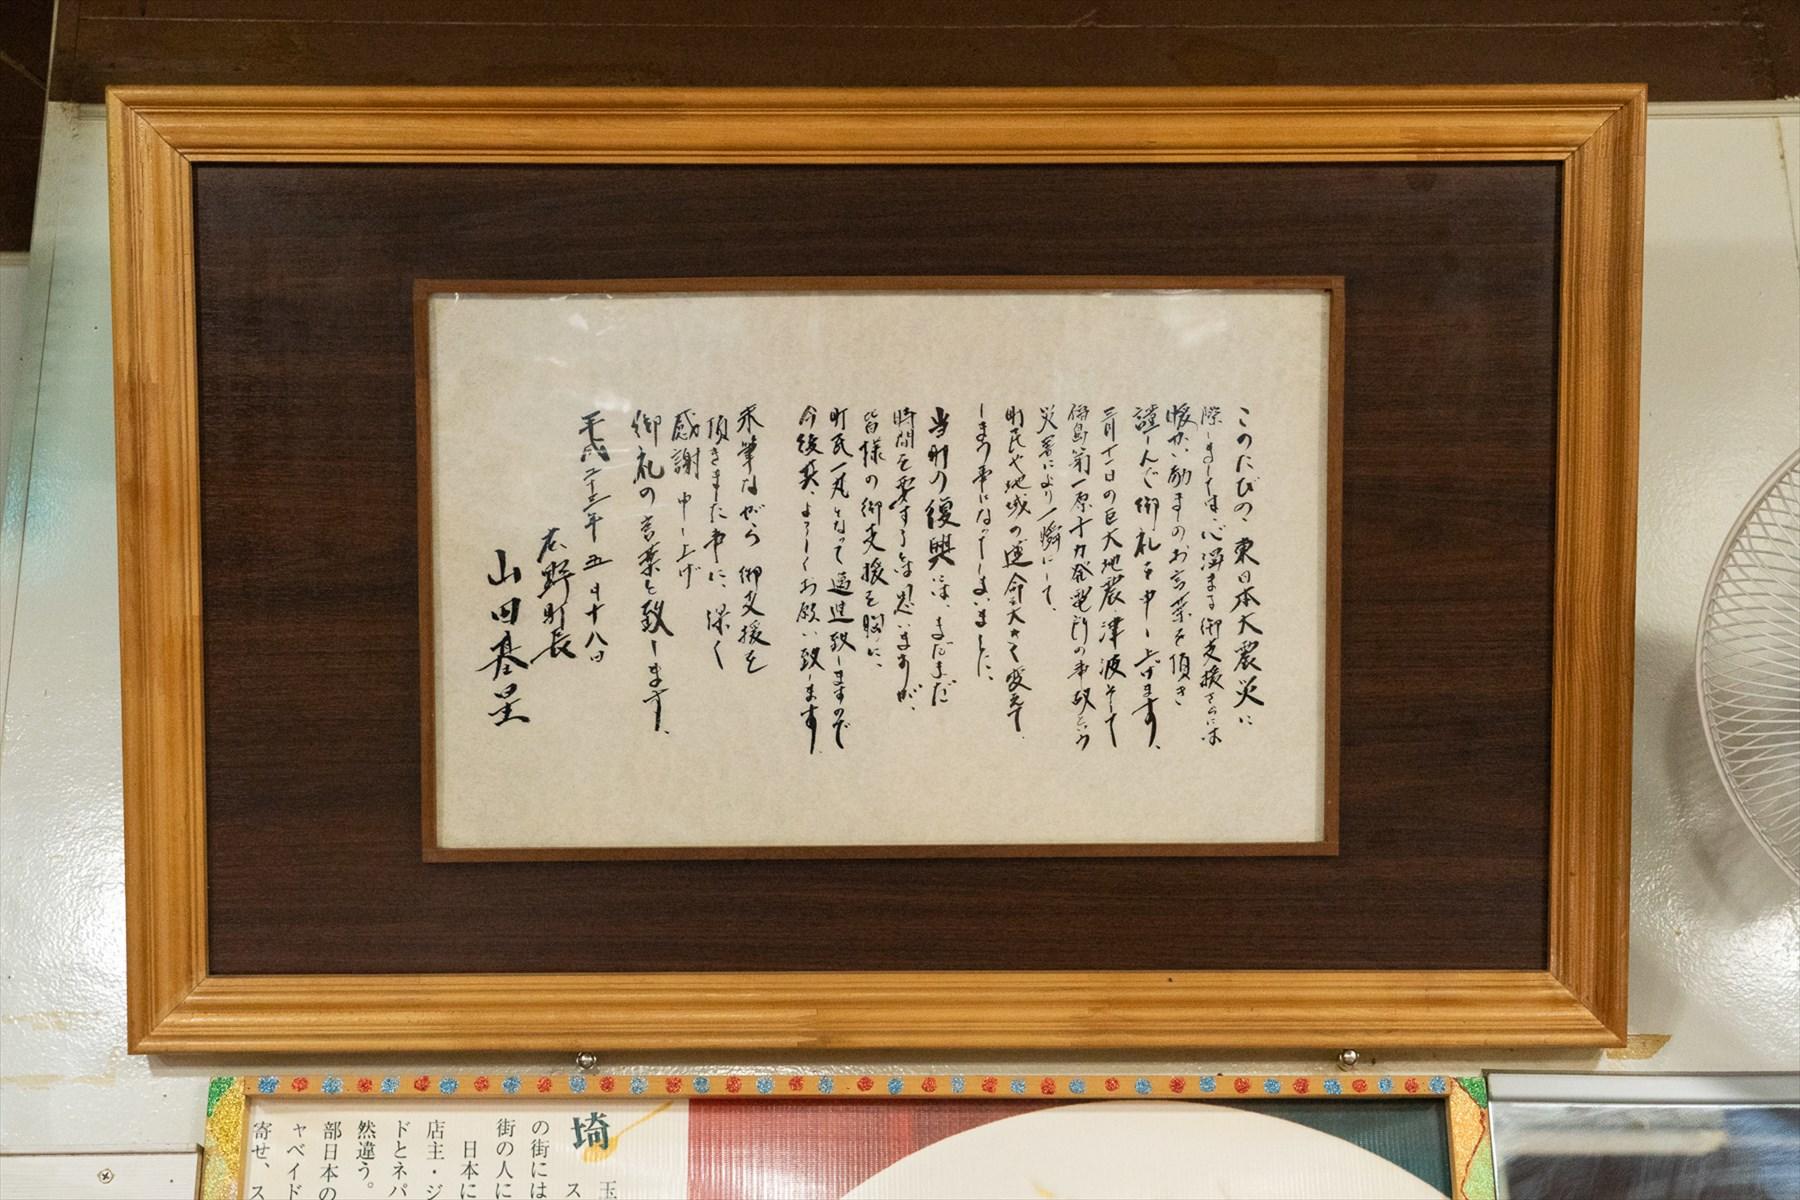 このたびの、東日本大震災に
際しましては、心温まる御支援さらには
暖かい励ましのお言葉を頂き
謹しんで御礼を申し上げます。
三月十一日の巨大地震、津波そして
福島第一原子力発電所の事故という
災害により一瞬にして、
町民や地域の運命を大きく変えて
しまう事になってしまいました、
当町の復興には、まだまだ
時間を要するとは思いますが、
皆様の御支援を胸に、
町民一丸となって邁進致しますので
今後共、よろしくお願い致します。
末筆ながら御支援を
頂きました事に、深く
感謝申し上げ
御礼の言葉と致します。
平成二十三年五月十八日
広野町長
山田基星
埼玉
ス
の街には
街の人に
日本に
店主・ジ
ドとネパ
然違う。
部日本の
ャベイド
寄せ、ス